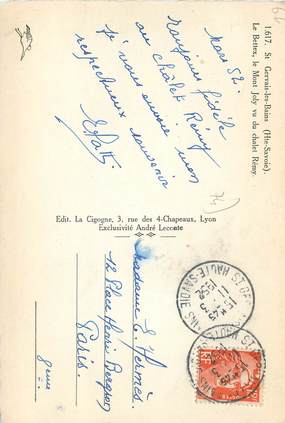 1.617. St Gervais-les-Bains (Hte-Savoie).
Le Bettex, le Mont Joly vu du chalet Rémy.
Mars 52.
Toujours fidèle
au châlet Rémy
je vous envoie mon
respectueux souvenir
Edit. La Cigogne, 3, rue des 4-Chapeaux, Lyon
Exclusivité André Leconte
Madame E. Hermès.
12 Place Henri Bergson
Paris.
8ème
HAUTE-SAVOIE
15 H 45
1952